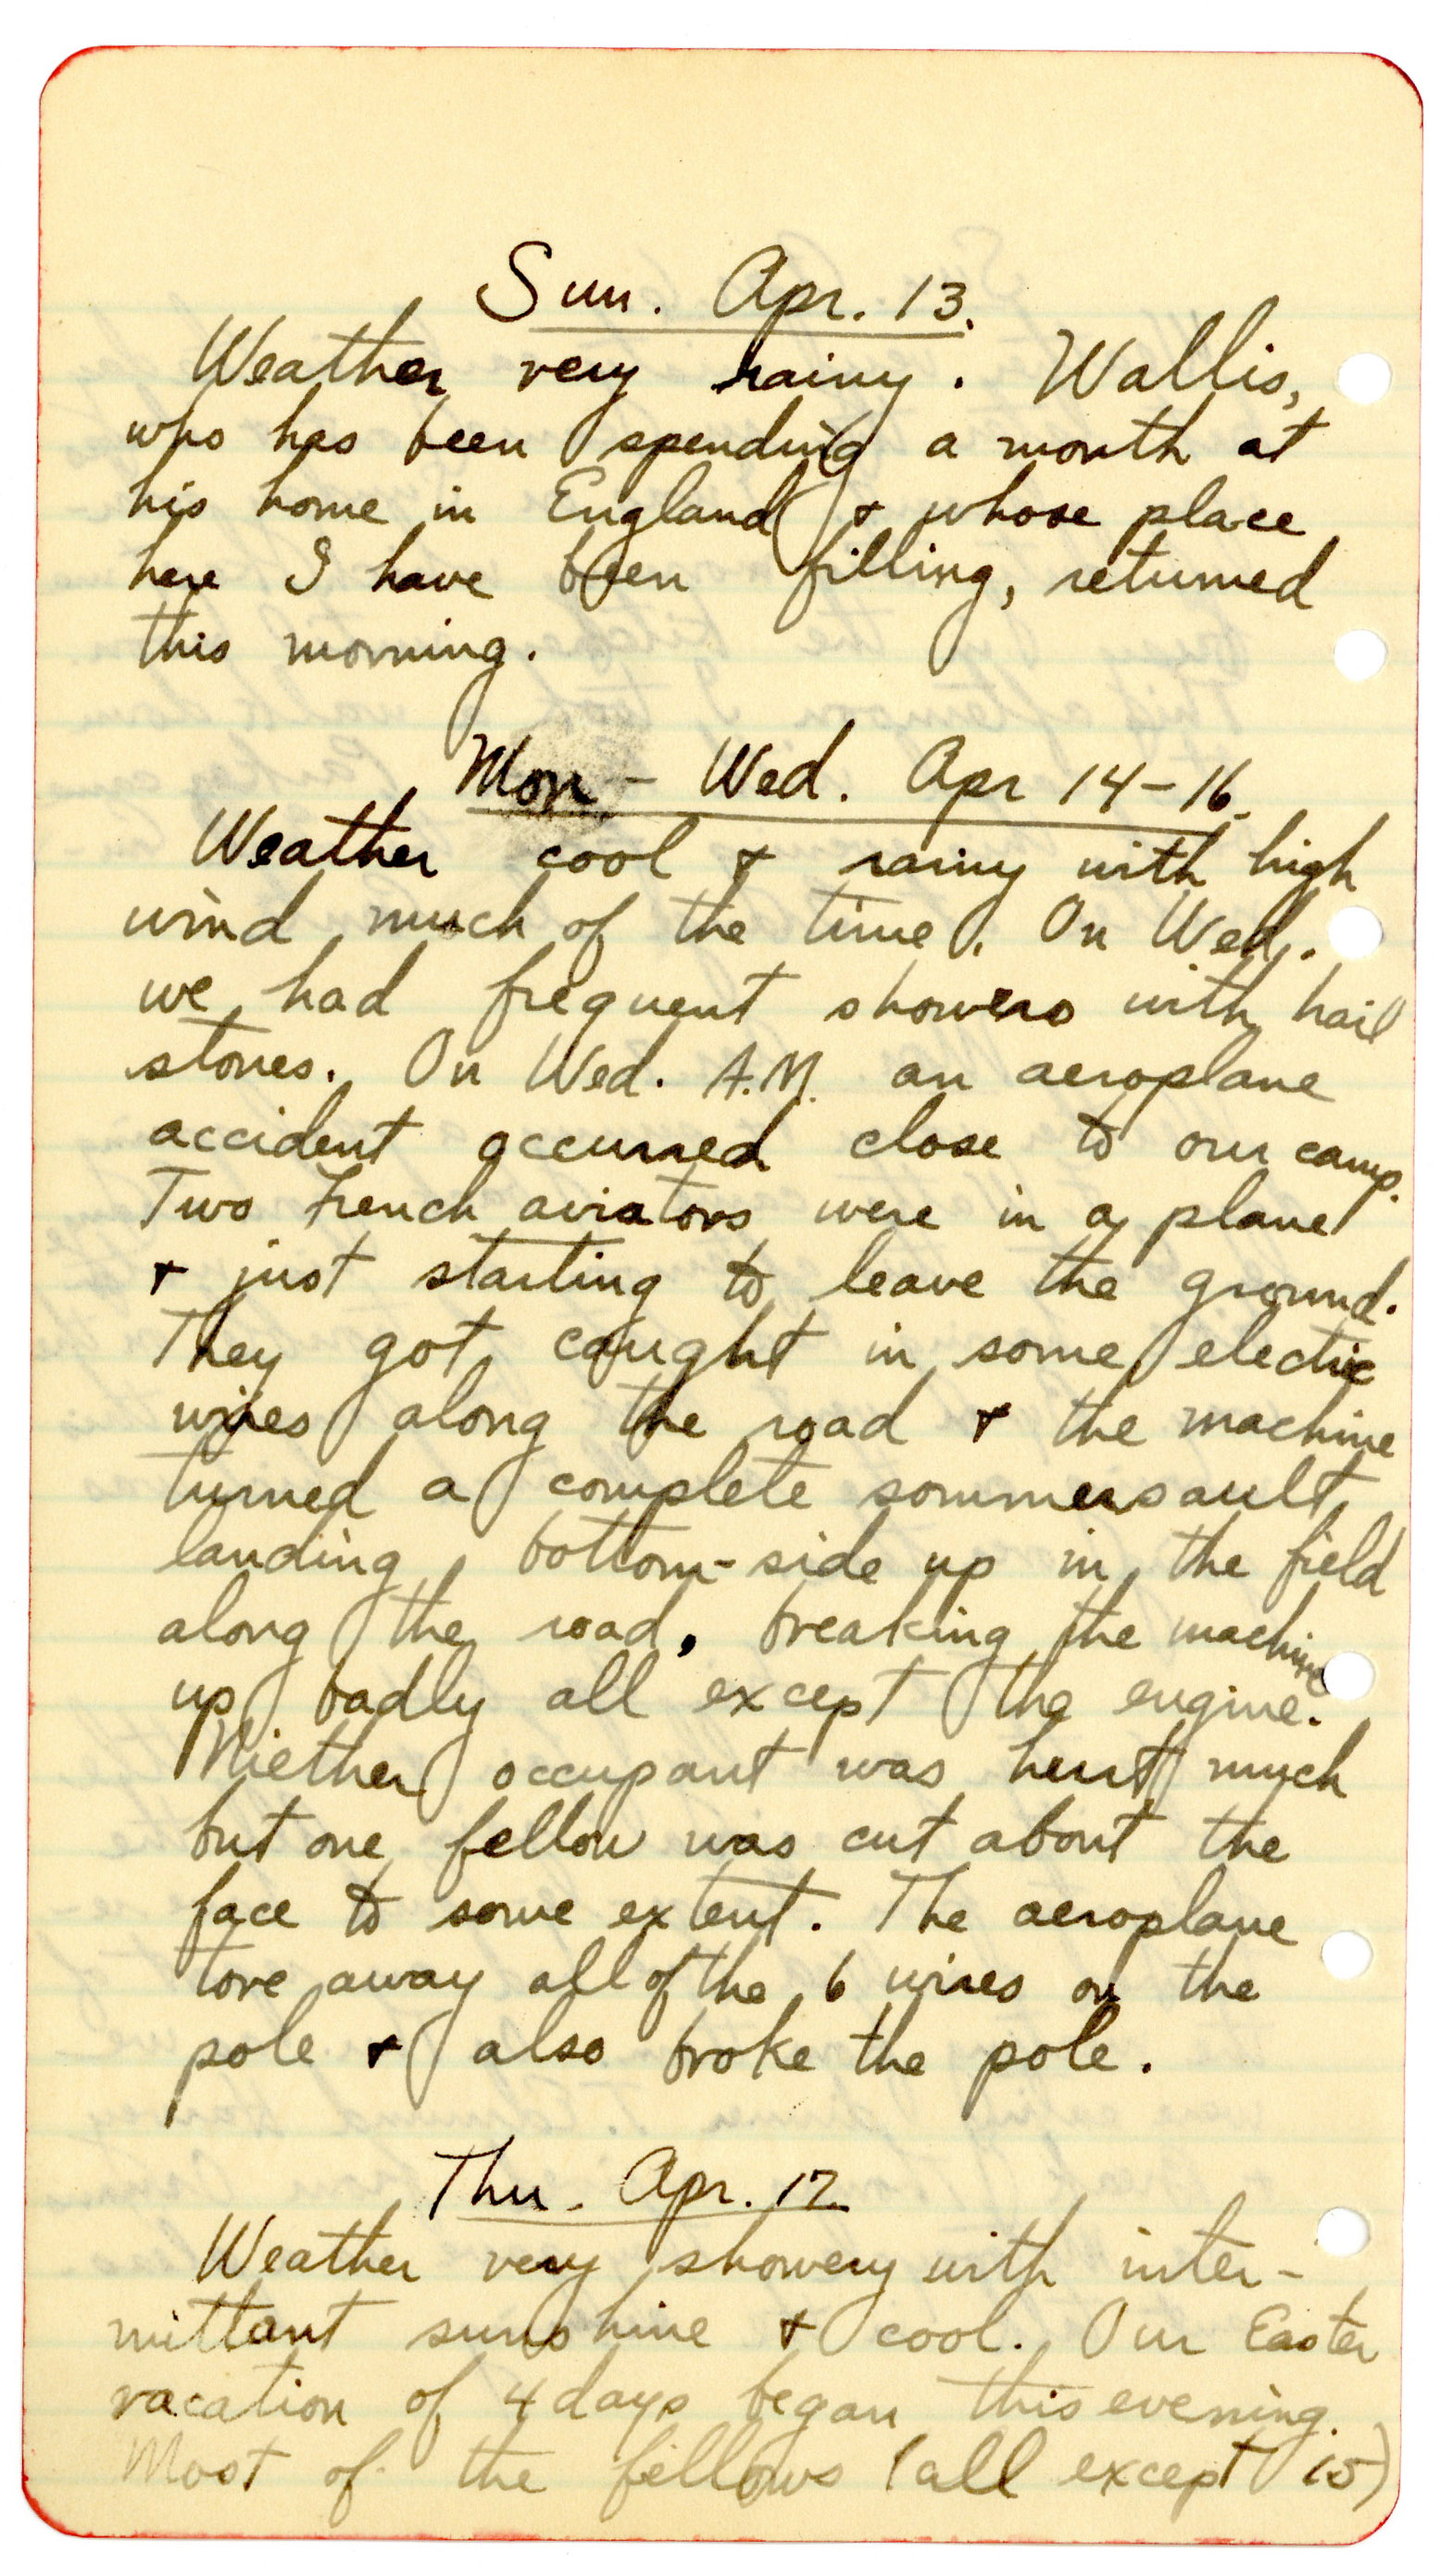 Sun. Apr. 13.
Weather very rainy. Wallis,
who has been spending a month at
his home in England & whose place
here I have been filling, returned
this morning.
Mon - Wed. Apr 14-16.
Weather cool & rainy with high
wind much of the time. On Wed.
we had frequent showers with hail
stones. On Wed. A.M. an aeroplane
accident occurred close to our camp.
Two French aviators were in a plane
& just starting to leave the ground.
They got caught in some electric
wires along the road & the machine
turned a complete sommersault,
landing bottom-side up in the field
along the road, breaking the machine
up badly all except the engine.
Niether occupant was hurt much
but one fellow was cut about the
face to some extent. The aeroplane
tore away all of the 6 wires on the
pole & also broke the pole.
Thu. Apr. 17
Weather very showery with inter-
mittant sunshine & cool. Our Easter
vacation of 4 days began this evening.
Most of the fellows (all except 15)